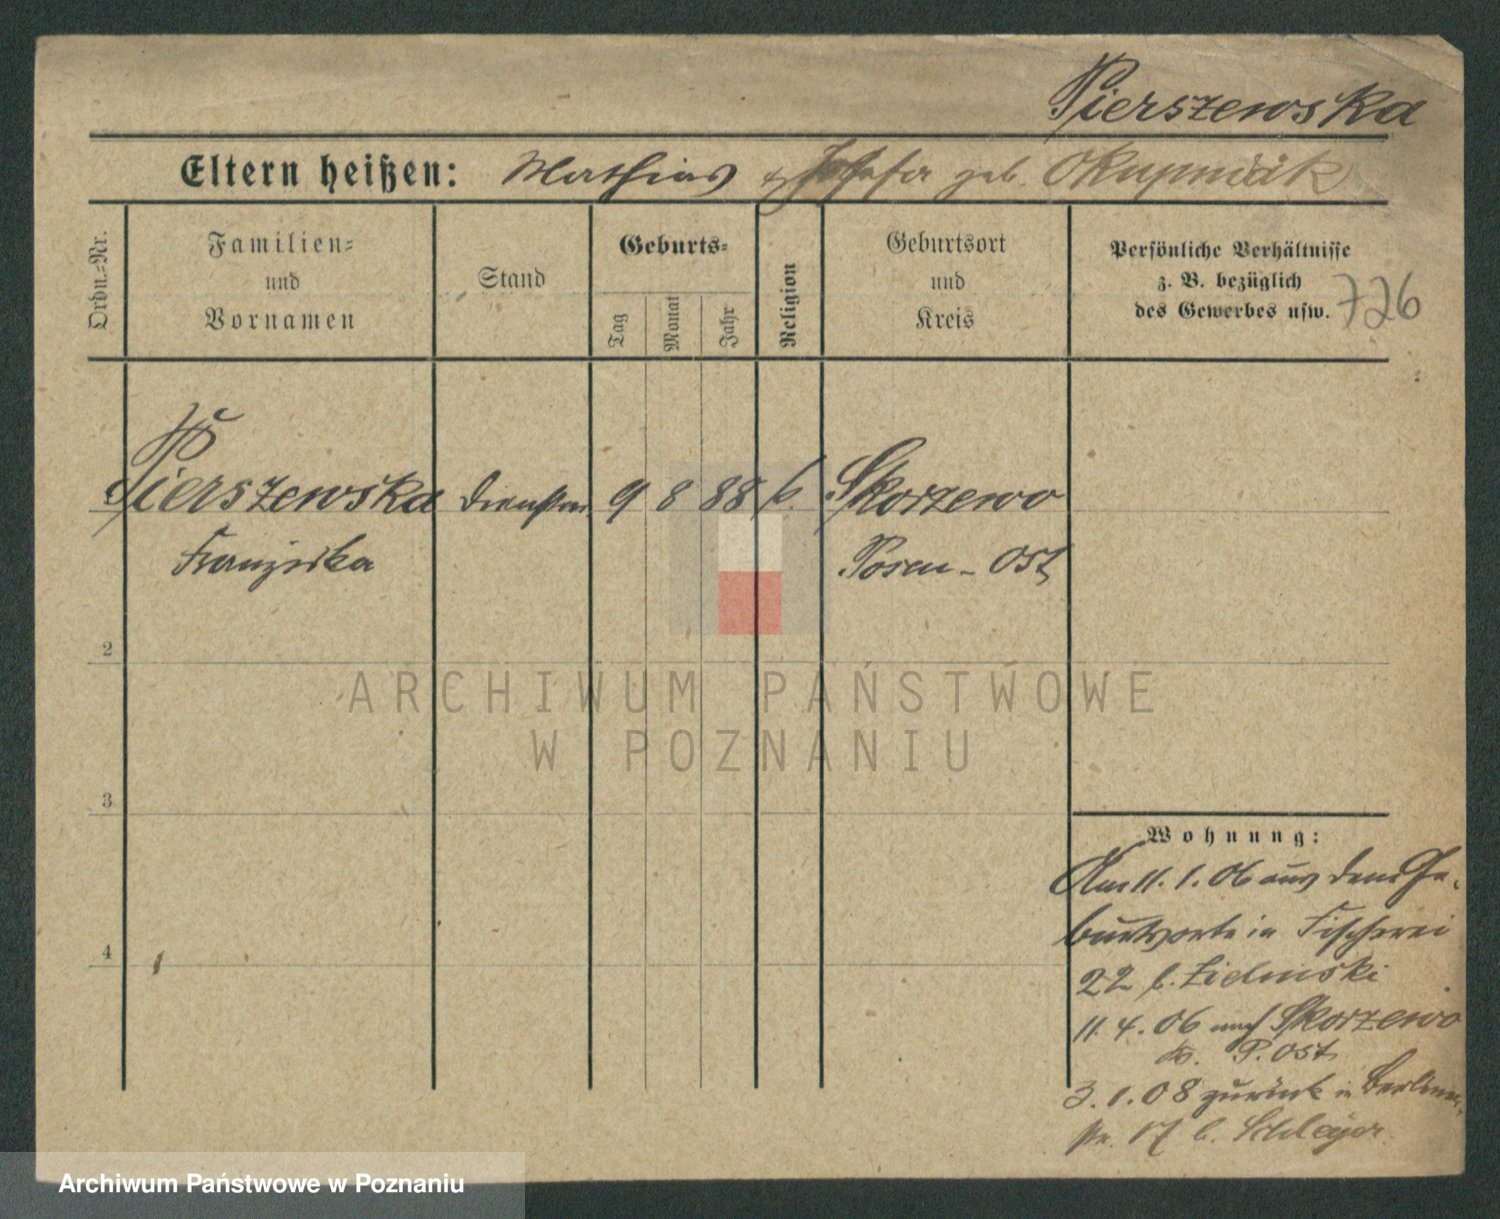 Pierszewska
Eltern heißen: Mathias & Josefa geb. Okupniak
Ordn.-Nr.
Familien-
und
Vornamen
Stand
Geburts-
Tag
Monat
Jahr
Religion
Geburtsort
und
Kreis
Persönliche Verhältnisse
z. B. bezüglich
des Gewerbes usw. 726
Pierszewska 9 8 88 k. Skorzewo
Franziska Posen-Ost
2
3
4
ARCHIWUM PAŃSTWOWE
W POZNANIU
Wohnung:
Am 11. 1. 06 aus dem Ge-
burtsorte in Fischerei
22 b. Zielinski
11. 4. 06 nach Skorzewo
P. Ost
3. 1. 08 zurück in Berliner-
str. 17 b.
Archiwum Państwowe w Poznaniu